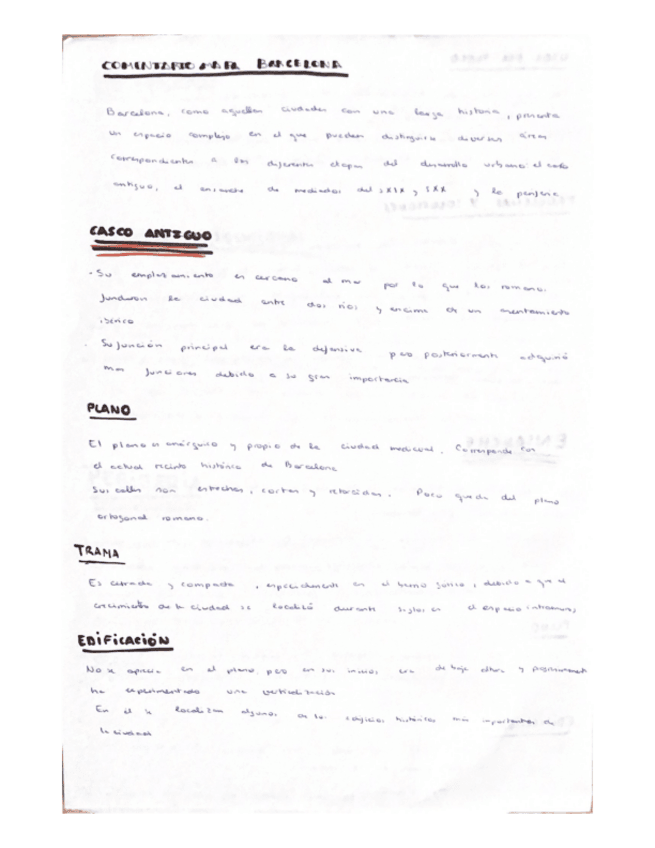 COMENTARIO MAPA BARCELONA
Barcelona, como aquellas ciudades con una larga historia, presenta
un espacio complejo en el que pueden distinguirse diversas áreas
correspondientes a las diferentes etapas del desarrollo urbano: el casco
antiguo, el ensanche de mediados del SXIX y SXX y la periferia
CASCO ANTIGUO
· Su emplazamiento es cercano al mar por lo que los romanos
fundaron la ciudad entre dos rios y encima de un asentamiento
iberico
· Su función principal era la defensiva pero posteriormente adquirió
mas funciones debido a su gran importancia
PLANO
El plano es anárquico y propio de la ciudad medieval. Corresponde con
el actual recinto histórico de Barcelona
Sus calles son estrechas, cortas y retorcidas. Poco queda del plano
ortogonal romano.
TRAMA
Es cerrada y compacta, especialmente en el barrio gótico, debido a que el
crecimiento de la ciudad se localizó durante siglos en el espacio intramuros
EDIFICACIÓN
No se aprecia en el plano, pero en sus inicios era de baja altura y
ha experimentado una verticalización
En él se localizan algunos de los edificios históricos más importantes de
la ciudad